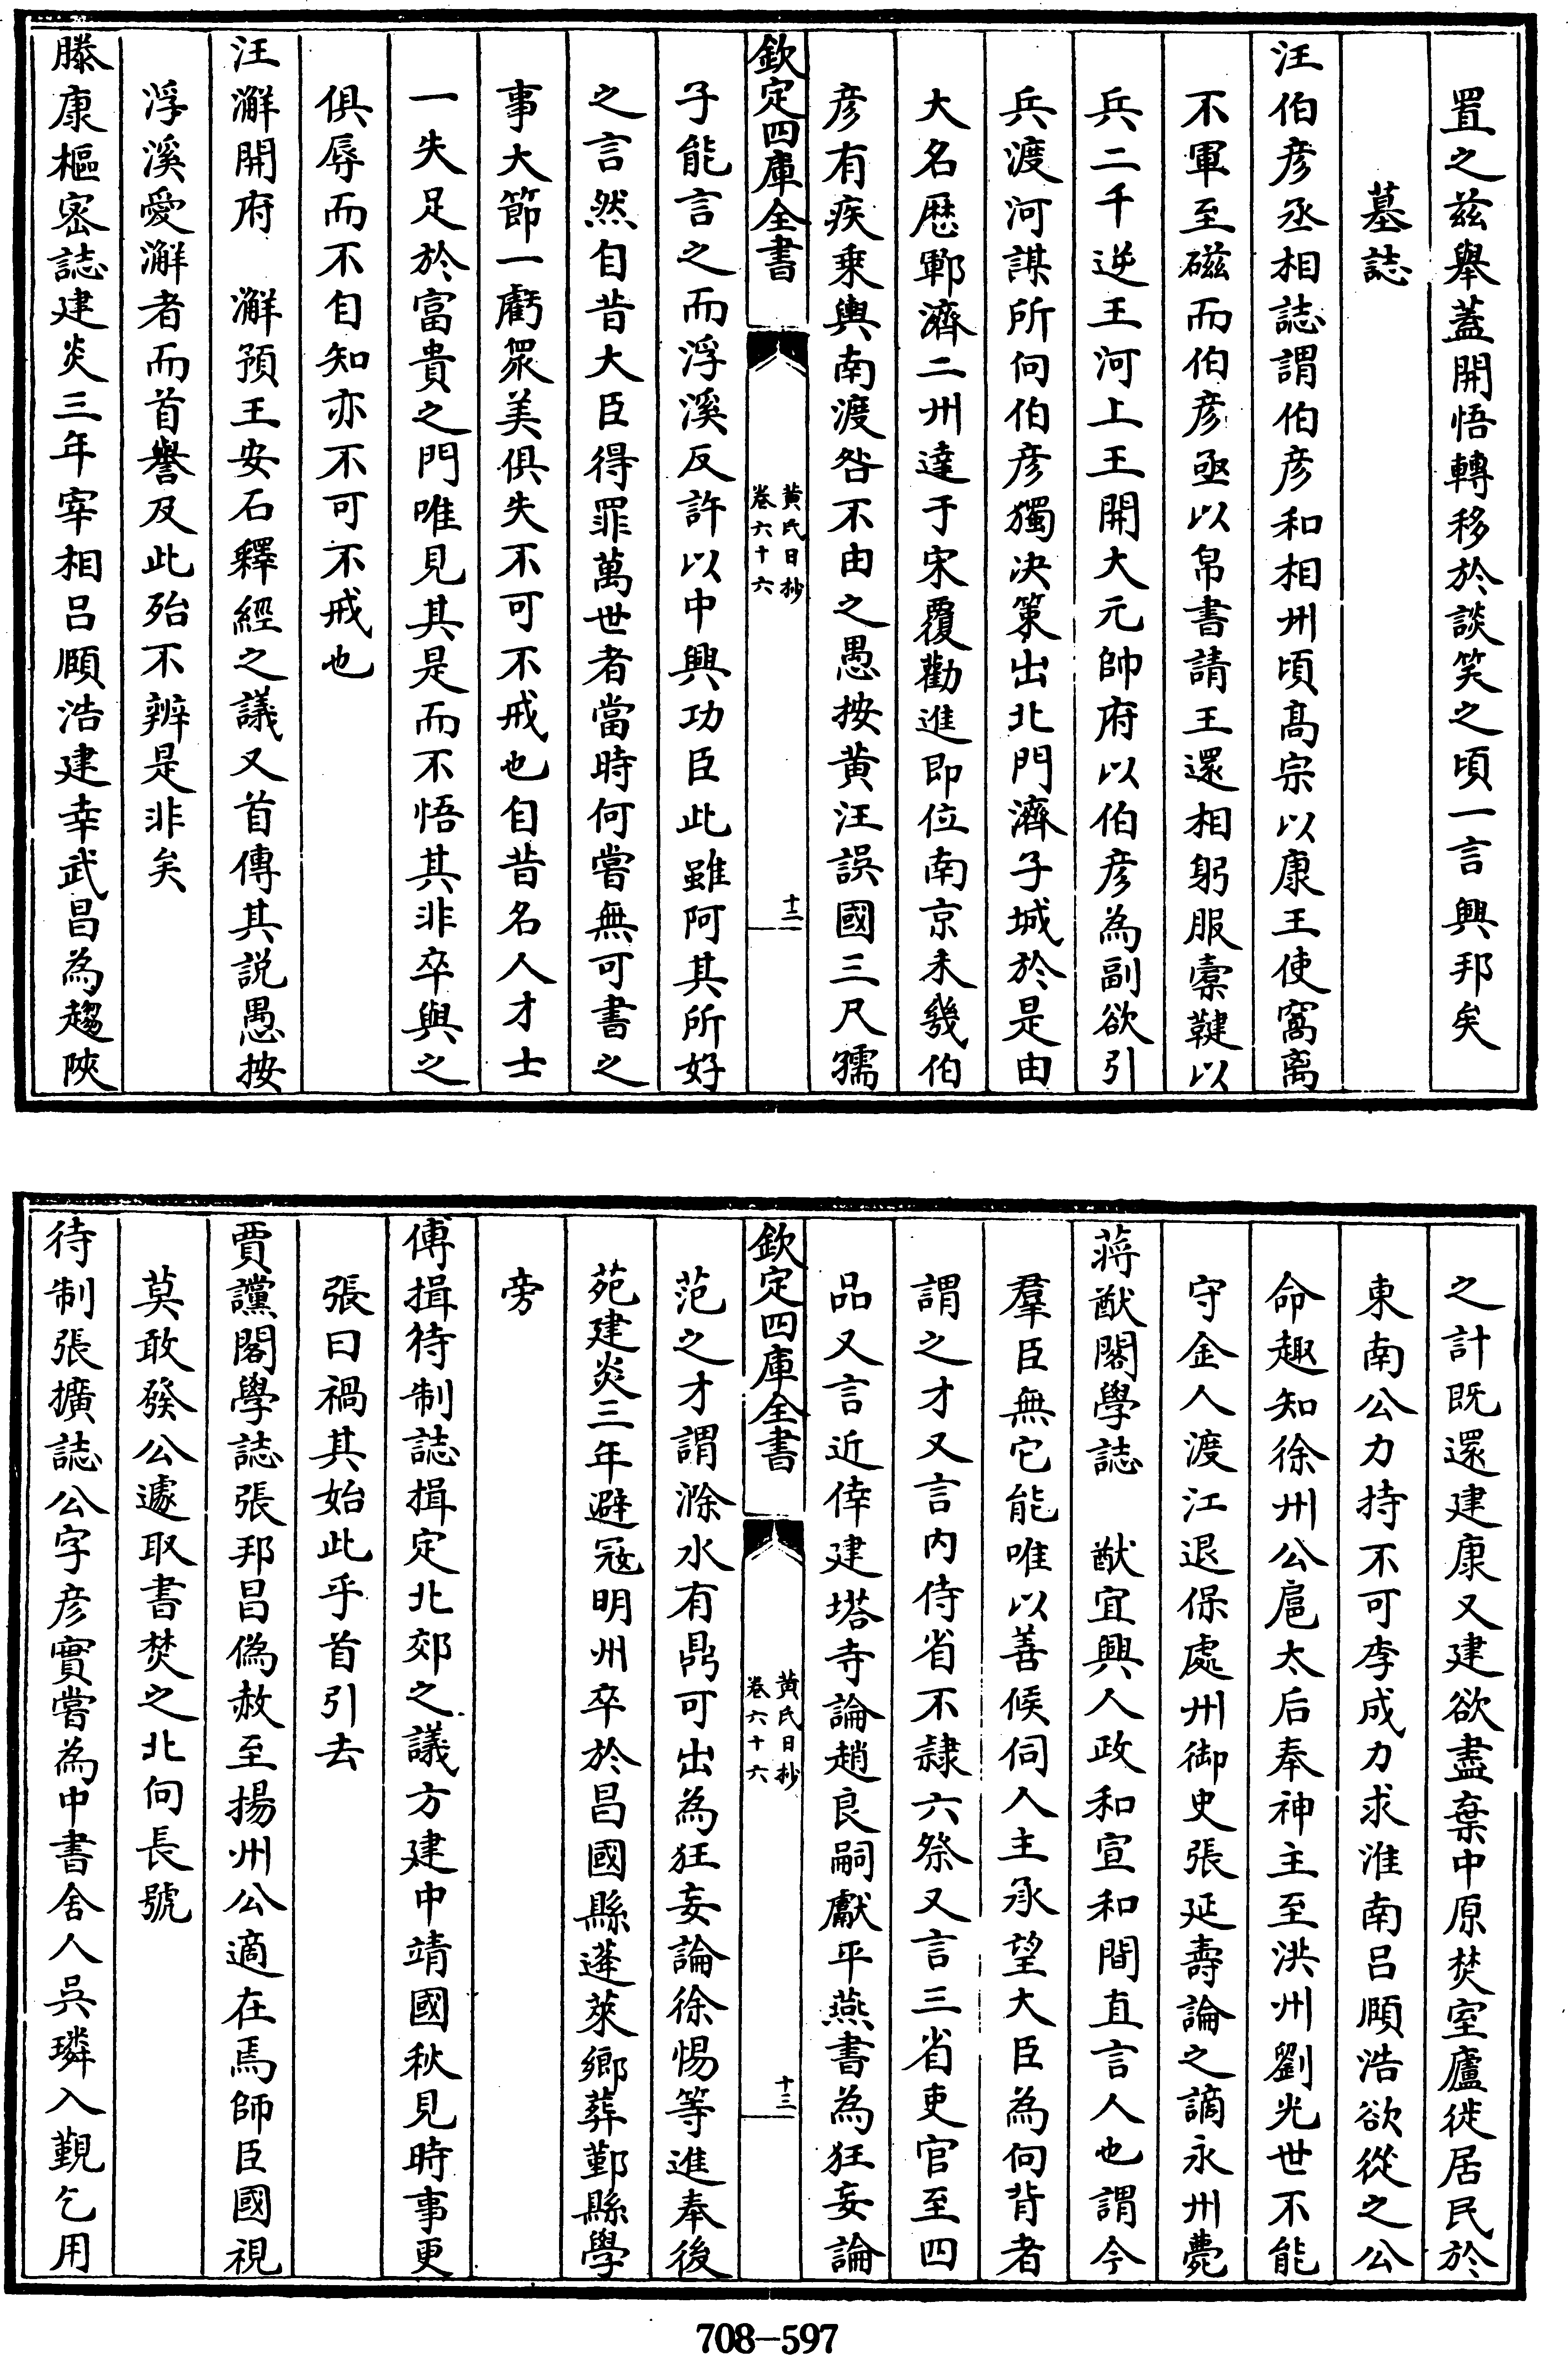 置之兹舉蓋開悟轉移於談笑之頃一言興邦矣
墓誌
汪伯彦丞相誌謂伯彦和相州頃髙宗以康王使窩离
不軍至磁而伯彦亟以帛書請王還相躬服櫜鞬以
兵二千逆王河上王開大元帥府以伯彦為副欲引
兵渡河謀所向伯彦獨决策出北門濟子城於是由
大名歷鄆濟二州達于宋覆勸進即位南京未幾伯
彦有疾乗輿南渡咎不由之愚按黄汪誤國三尺孺
欽定四庫全書
黄氏日抄
卷六十六
十二
子能言之而浮溪反許以中興功臣此雖阿其所好
之言然自昔大臣得罪萬世者當時何嘗無可書之
事大節一虧衆美俱失不可不戒也自昔名人才士
一失足於富貴之門唯見其是而不悟其非卒與之
俱辱而不自知亦不可不戒也
汪澥開府　澥預王安石釋經之議又首傳其説愚按
浮溪愛澥者而首譽及此殆不辨是非矣
滕康樞宻誌建炎三年宰相吕頤浩建幸武昌為趨陜
之計既還建康又建欲盡棄中原焚室廬徙居民於
東南公力持不可李成力求淮南吕頤浩欲從之公
命趣知徐州公扈太后奉神主至洪州劉光世不能
守金人渡江退保處州御史張延壽論之謫永州薨
蔣猷閣學誌　猷宜興人政和宣和間直言人也謂今
羣臣無它能唯以善候伺人主承望大臣為向背者
謂之才又言内侍省不隷六祭又言三省吏官至四
品又言近倖建塔寺論趙良嗣獻平燕書為狂妄論
欽定四庫全書
黄氏日抄
卷六十六
十三
范之才謂滁水有鼎可出為狂妄論徐惕等進奉後
苑建炎三年避冦明州卒於昌國縣蓬萊鄉葬鄞縣學
旁
傅揖待制誌揖定北郊之議方建中靖國秋見時事更
張曰禍其始此乎首引去
賈讜閣學誌張邦昌偽赦至揚州公適在焉師臣國視
莫敢發公遽取書焚之北向長號
待制張擴誌公字彦實嘗為中書舍人吳璘入覲乞用
708—597